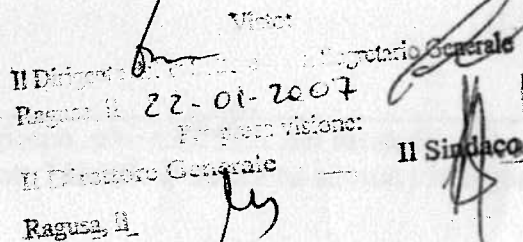 Visto:
Il Dirigente Il Segretario Generale
Ragusa, il 22-01-2007
Per presa visione:
Il Direttore Generale Il Sindaco
Ragusa, il